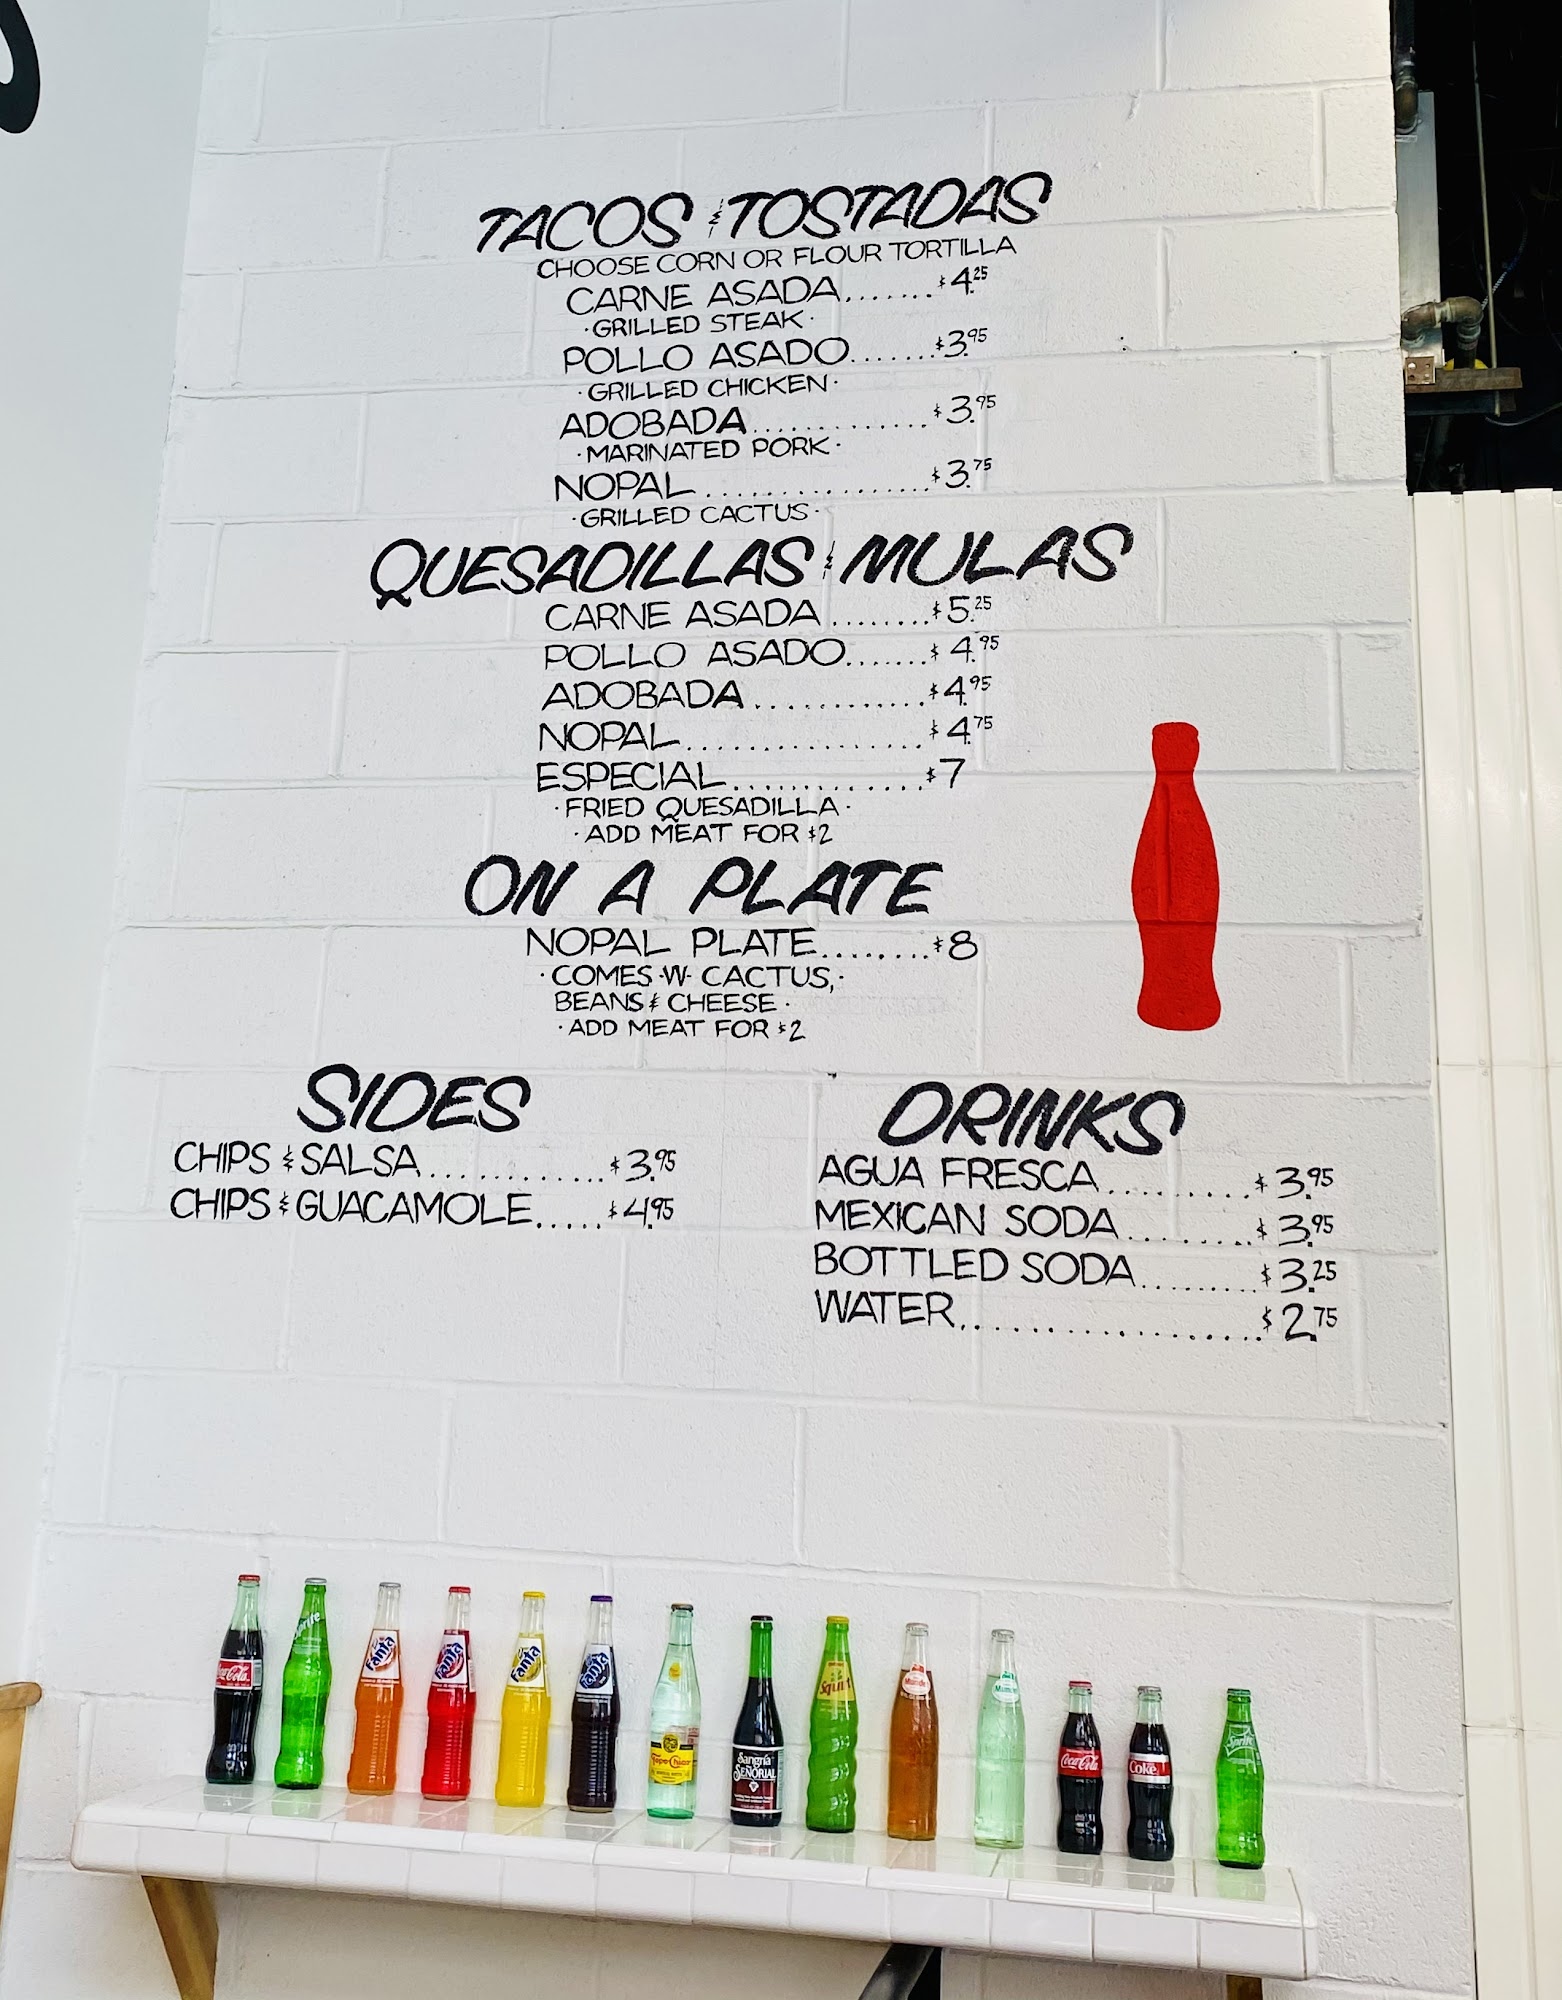 TACOS & TOSTADAS
CHOOSE CORN OR FLOUR TORTILLA
CARNE ASADA.......$4.25
·GRILLED STEAK·
POLLO ASADO.......$3.95
·GRILLED CHICKEN·
ADOBADA.............$3.95
·MARINATED PORK·
NOPAL.................$3.75
·GRILLED CACTUS·
QUESADILLAS & MULAS
CARNE ASADA........$5.25
POLLO ASADO.......$4.95
ADOBADA............$4.95
NOPAL.................$4.75
ESPECIAL.............$7
·FRIED QUESADILLA·
·ADD MEAT FOR $2
ON A PLATE
NOPAL PLATE........$8
·COMES ·W· CACTUS,·
BEANS & CHEESE·
·ADD MEAT FOR $2
SIDES
CHIPS & SALSA.............$3.95
CHIPS & GUACAMOLE.....$4.95
DRINKS
AGUA FRESCA..........$3.95
MEXICAN SODA.........$3.95
BOTTLED SODA.........$3.25
WATER...................$2.75
Coca-Cola
Sprite
Fanta
Fanta
Fanta
Fanta
Topo Chico
Sangría
SEÑORIAL
Squirt
Coca-Cola
Coke
Sprite